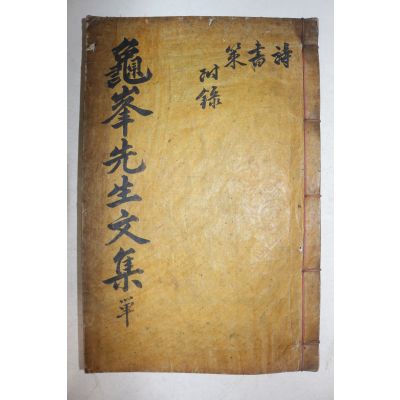 詩書策
附錄
龜峯先生文集 單